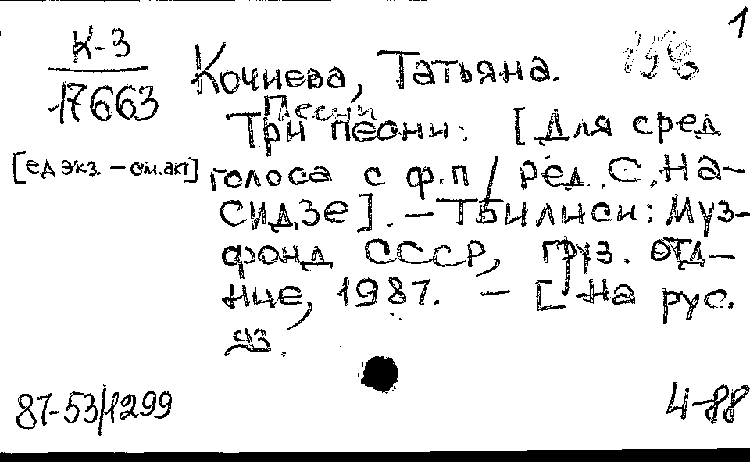 1
К-3
17663
Кочнева, Татьяна.
Песни
Три песни: [Для сред
[ед экз. – см. акт]
голоса с ф.п / ред. С. На-
сидзе]. – Тбилиси: Муз-
фонд СССР, груз. отд-
ние, 1987. – [На рус.
яз.
87-53/1299
4-88